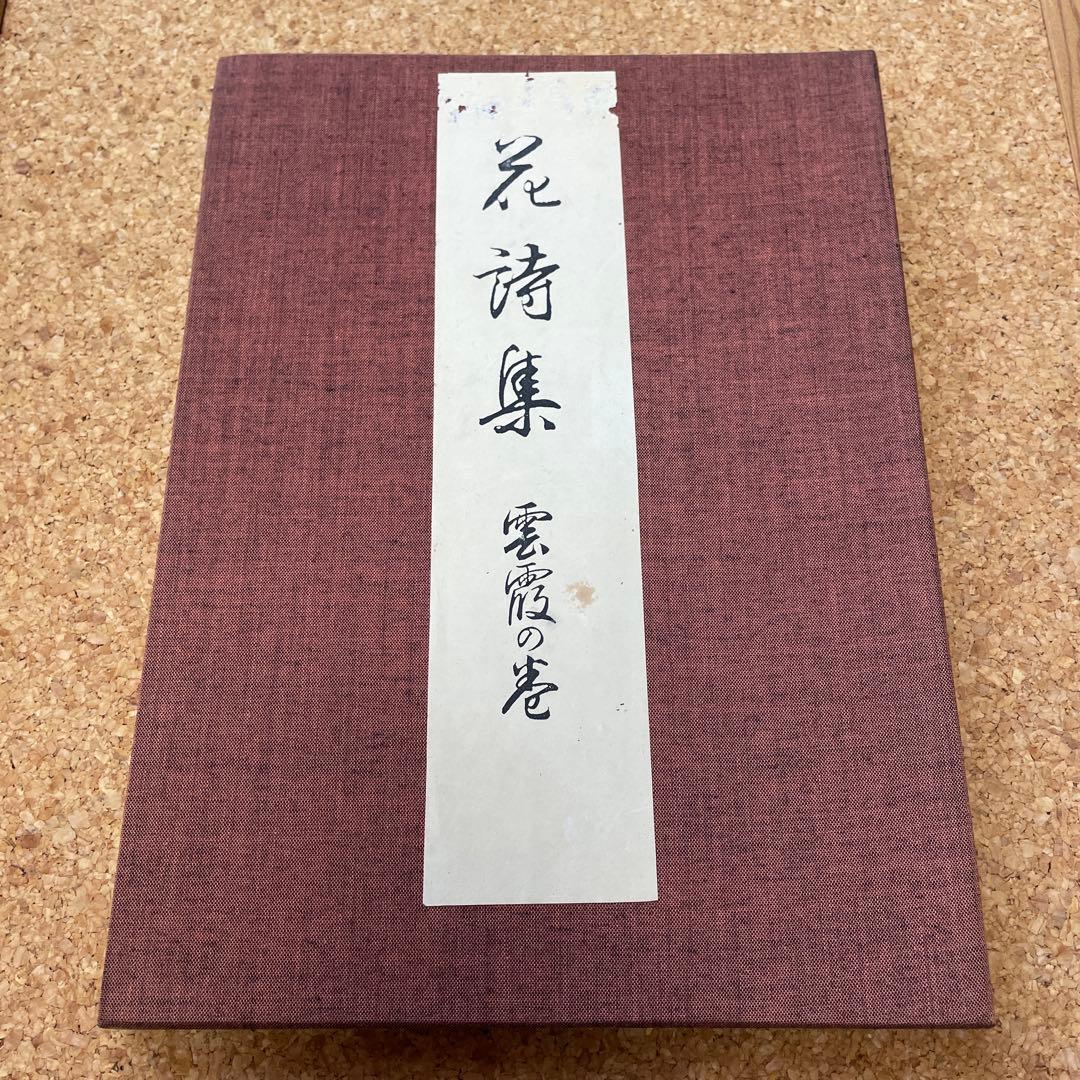 花詩集 雲霞の巻